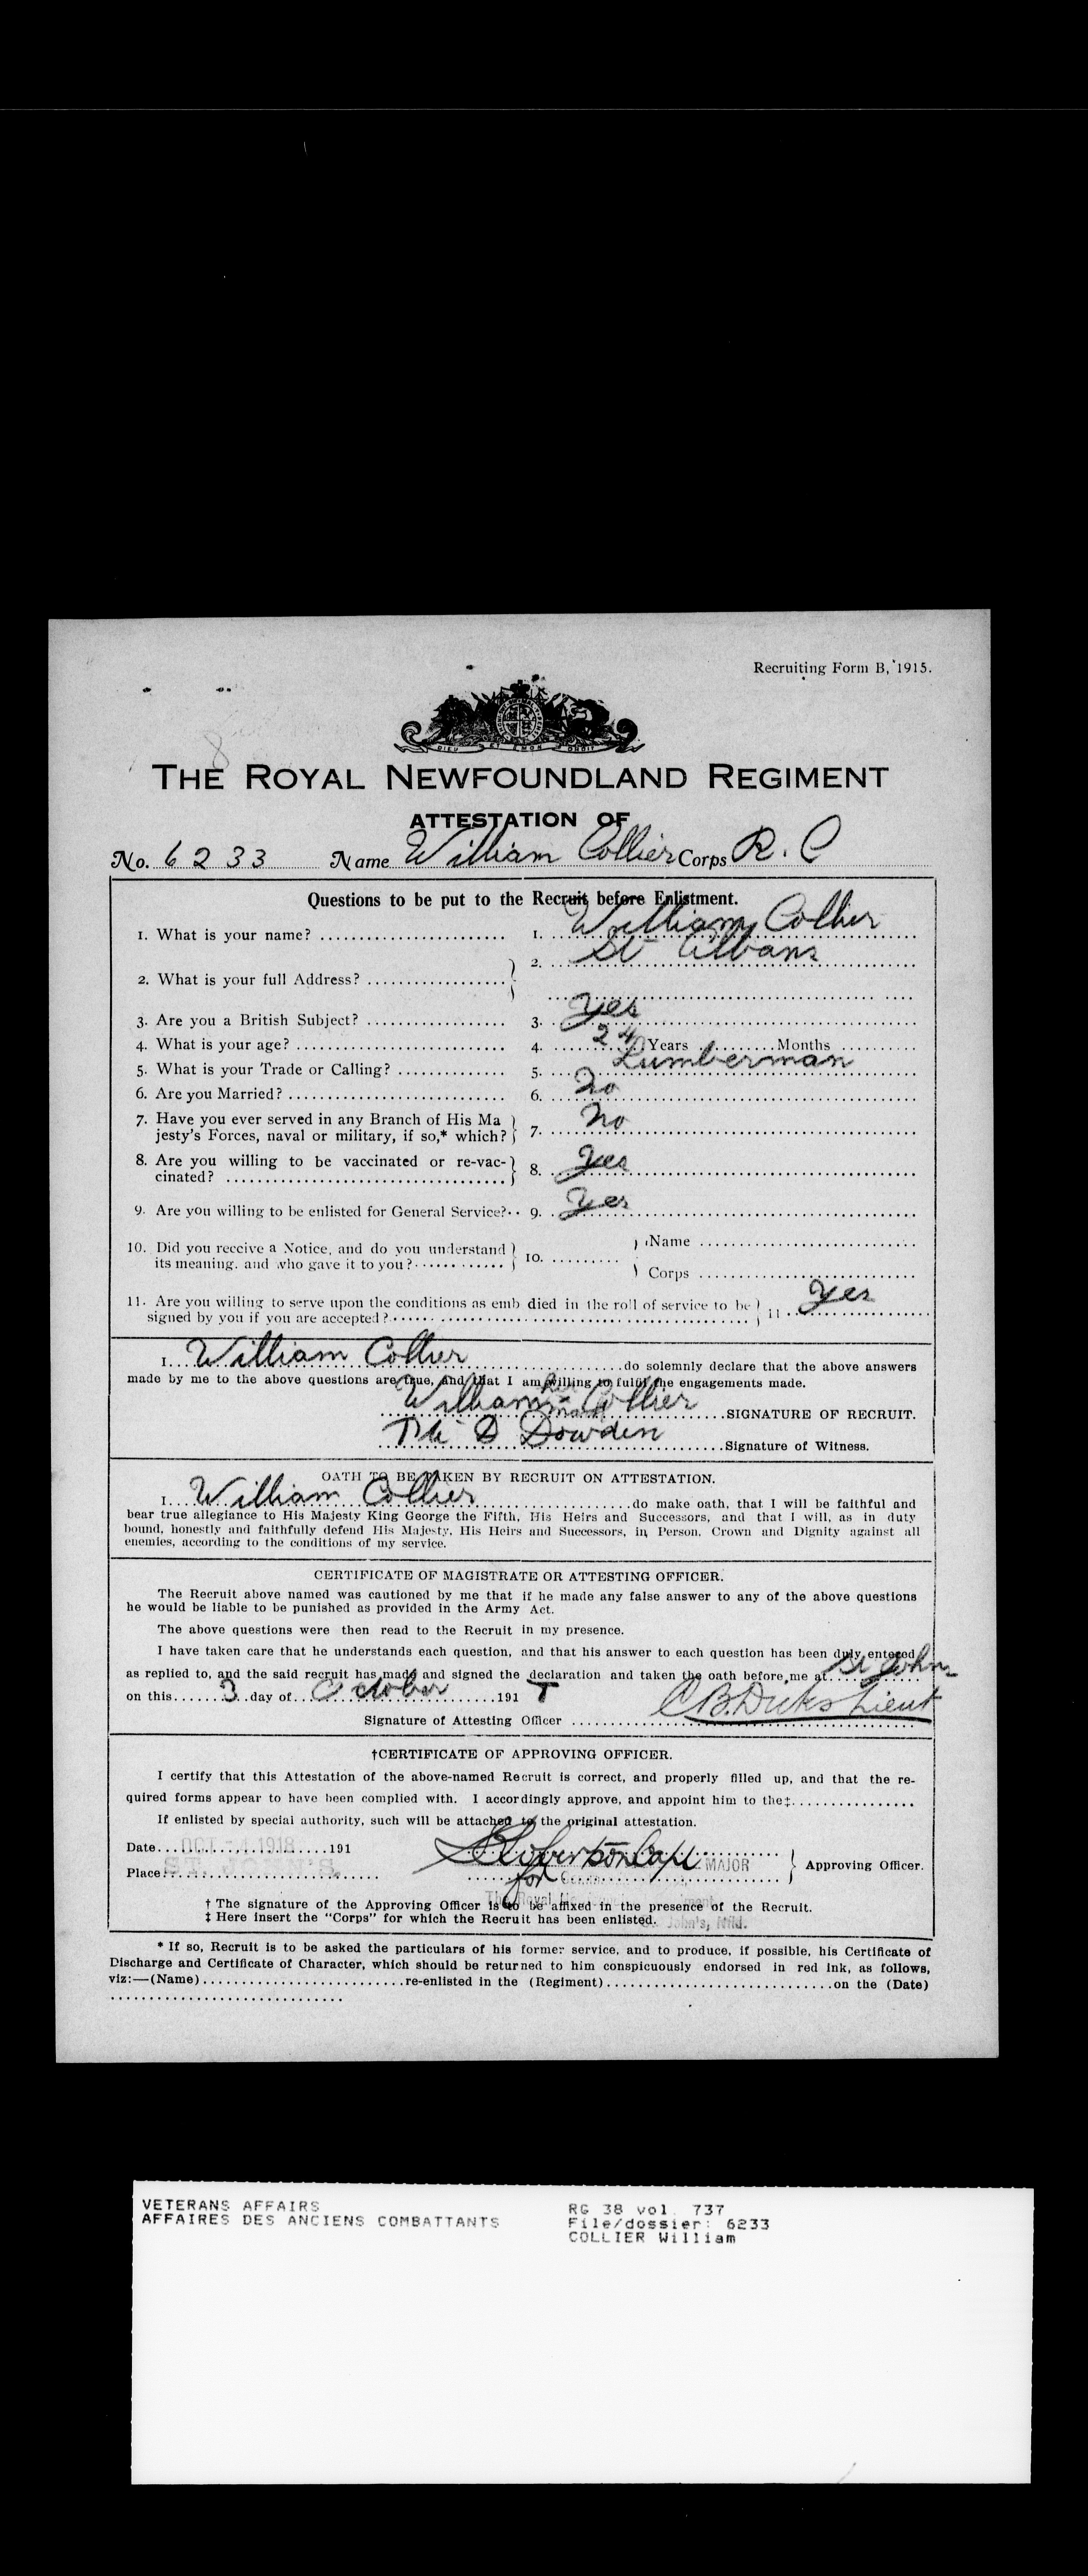 Recruiting Form B, 1915.
DIEU ET MON DROIT
THE ROYAL NEWFOUNDLAND REGIMENT
ATTESTATION OF
No. 6233 Name William Collier Corps R. C
Questions to be put to the Recruit before Enlistment.
1. What is your name? ........................ 1. William Collier
2. What is your full Address? .................. 2. St Albans
3. Are you a British Subject? .................. 3. Yes
4. What is your age? ........................... 4. 24 Years ..........Months ..........
5. What is your Trade or Calling? .............. 5. Lumberman
6. Are you Married? ............................ 6. No
7. Have you ever served in any Branch of His Ma
jesty's Forces, naval or military, if so,* which? 7. No
8. Are you willing to be vaccinated or re-vac-
cinated? .................................... 8. Yes
9. Are you willing to be enlisted for General Service?.. 9. Yes
10. Did you receive a Notice, and do you understand
its meaning. and who gave it to you?............ 10. ......... Name ............................
Corps ............................
11. Are you willing to serve upon the conditions as emb died in the roll of service to be
signed by you if you are accepted?............ 11 Yes
I... William Collier ....................do solemnly declare that the above answers
made by me to the above questions are true, and that I am willing to fulfil the engagements made.
William Collier
mark
.......SIGNATURE OF RECRUIT.
Dowden .......Signature of Witness.
OATH TO BE TAKEN BY RECRUIT ON ATTESTATION.
I... William Collier ....................do make oath, that I will be faithful and
bear true allegiance to His Majesty King George the Fifth, His Heirs and Successors, and that I will, as in duty
bound, honestly and faithfully defend His Majesty, His Heirs and Successors, in Person, Crown and Dignity against all
enemies, according to the conditions of my service.
CERTIFICATE OF MAGISTRATE OR ATTESTING OFFICER.
The Recruit above named was cautioned by me that if he made any false answer to any of the above questions
he would be liable to be punished as provided in the Army Act.
The above questions were then read to the Recruit in my presence.
I have taken care that he understands each question, and that his answer to each question has been duly entered
as replied to, and the said recruit has made and signed the declaration and taken the oath before me at St Johns
on this.......3..day of...October..........191
Signature of Attesting Officer C.B. Dicks Lieut
†CERTIFICATE OF APPROVING OFFICER.
I certify that this Attestation of the above-named Recruit is correct, and properly filled up, and that the re-
quired forms appear to have been complied with. I accordingly approve, and appoint him to the‡................
If enlisted by special authority, such will be attached to the original attestation.
Date... OCT - 4 1918 .....191
Robertson Capt MAJOR
for
Approving Officer.
Place ST. JOHN'S.
The Royal
† The signature of the Approving Officer is to be affixed in the presence of the Recruit.
‡ Here insert the "Corps" for which the Recruit has been enlisted. St. John's, Nfld.
* If so, Recruit is to be asked the particulars of his former service, and to produce, if possible, his Certificate of
Discharge and Certificate of Character, which should be returned to him conspicuously endorsed in red ink, as follows,
viz:—(Name)..........................re-enlisted in the (Regiment).............................on the (Date)
..............................
VETERANS AFFAIRS
AFFAIRES DES ANCIENS COMBATTANTS
RG 38 vol. 737
File/dossier: 6233
COLLIER William